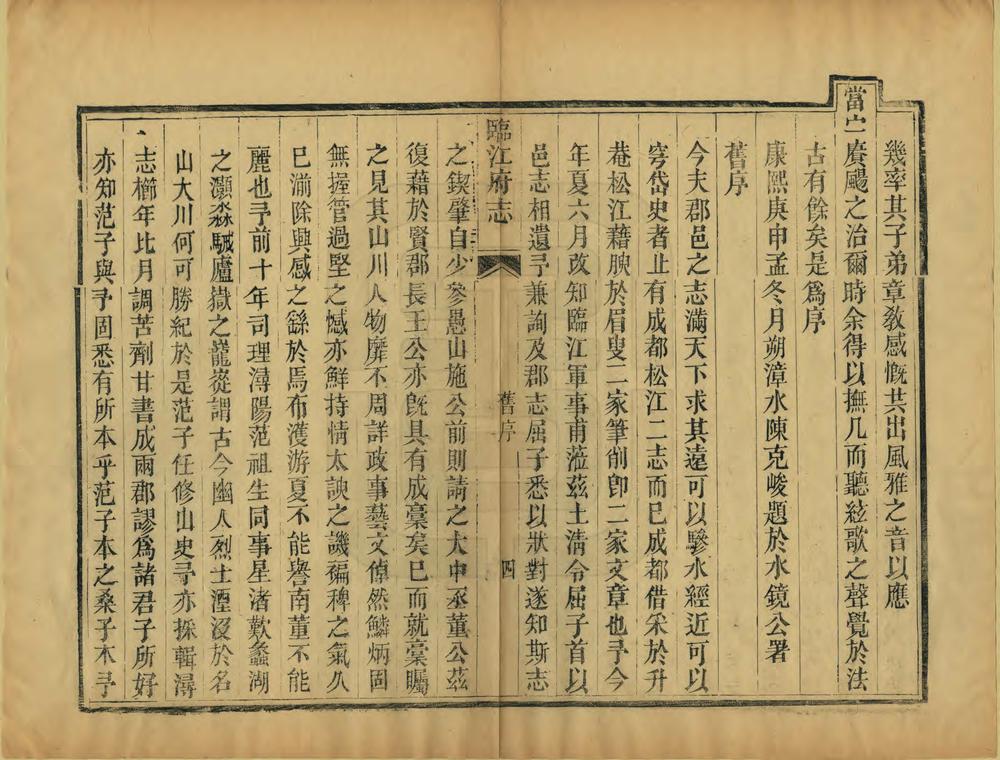 幾率其子弟章敎感慨共出風雅之音以應
當宁賡颺之治爾時余得以撫几而聽絃歌之聲覺於法
古有餘矣是爲序
康熙庚申孟冬月朔漳水陳克峻題於水鏡公署
舊序
今夫郡邑之志滿天下求其遠可以驂水經近可以
穹岱史者止有成都松江二志而巳成都借采於升
菴松江藉腴於眉叟二家筆削卽二家文章也予今
年夏六月攺知臨江軍事甫蒞茲土淸令屈子首以
邑志相遺予兼詢及郡志屈子悉以狀對遂知斯志
臨江府志
舊序
四
之鍥肇自少參愚山施公前則請之大中丞董公茲
復藉於賢郡長王公亦旣具有成稾矣巳而就稾矚
之見其山川人物靡不周詳政事藝文倬然鱗炳固
無握管過堅之憾亦鮮持情太諛之譏褊稗之氣久
巳湔除與感之繇於焉布濩游夏不能譽南董不能
麗也予前十年司理潯陽范祖生同事星渚歎蠡湖
之灝淼馘廬嶽之巃嵸謂古今幽人烈士湮沒於名
山大川何可勝紀於是范子任修山史予亦採輯潯
志櫛年比月調苦劑甘書成兩郡謬爲諸君子所好
亦知范子與予固悉有所本乎范子本之桑子木予